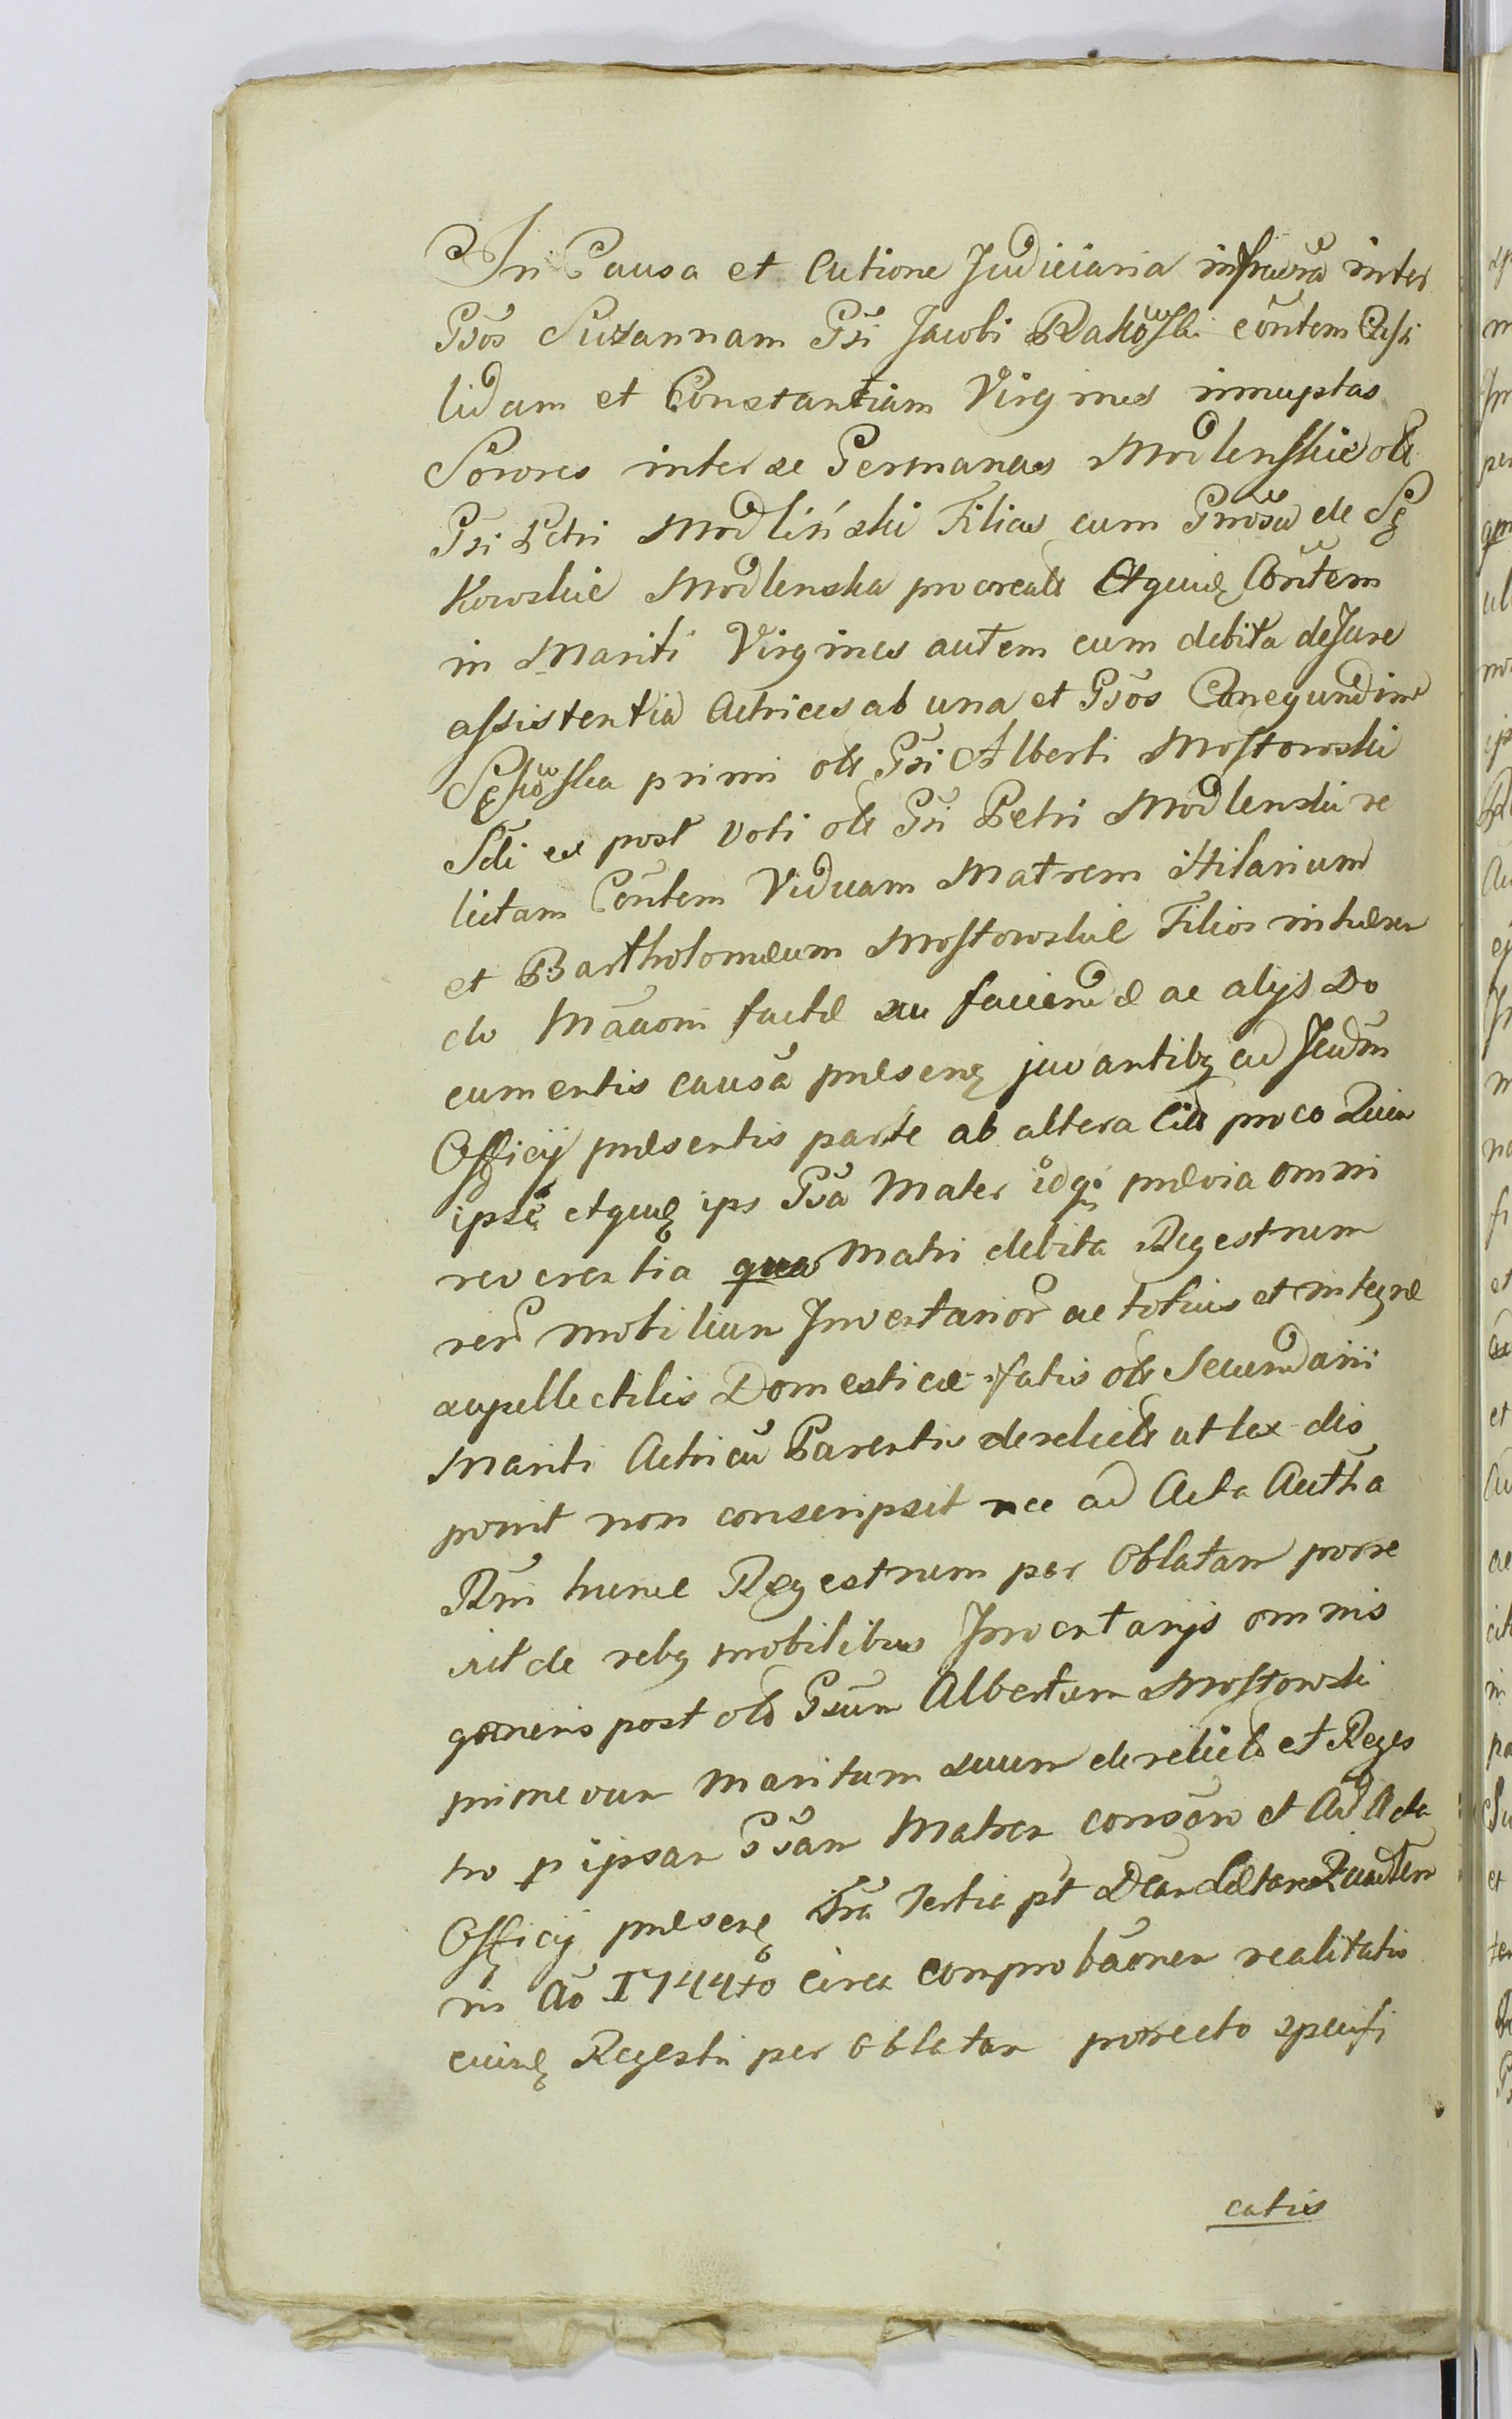 In Causa et Cutione Judiciaria infrawra inter
Gsos Suzannam Gsi Jacobi Rakowski contem Casi
lidam et Constantiam Virgines innuptas
Sorores inter se Germanas Modlenskie olt
Gsi Petri Modliński Filias cum Gnrosa de Sę
Kowskie Modlenska procreats Etquidę Contem
in Mariti Virgines autem cum debita deJure
assistentia Actrices ab una et Gsos Cunegundim
Sękowska primi olt Gsi Alberti Mostowski
Sdi ex post voti olt Gsi Petri Modlenski re
lictam Contem Viduam Matrem Hilarium
et Bartholomeum Mostowskie Filios inhæren
do Mãuoni factæ seu faciendæ ac alijs Do
cumentis causã præsenę juvantibg ad Judm
Officij præsentis parte ab altera Citt pro eo Quia
ipsę etquidę ips Gsa Mater idq. prævia omni
reverentia qua Matri debita Regestrum
rerũ mobilium Inventarior ac totius et integræ
supellectilis Domesticæ fatis olt Secundarii
Mariti Actricũ Parentis derelicts ut lex dis
ponit non conscripsit nec ad Acta Autha
Rmi hunc Regestrum per Oblatam porre
xit de rebg mobilibus Inventarijs omnis
generis post olt Gsum Albertum Mostowski
primevum Maritum suum derelicts et Reges
tro p ipsam Gsam Matrem consõn et Ad Acta
Officij præsenę fra Tertia pt Dcam Lætare Quadten
in Aõ 1744to circa comprobãonem realitatis
cuisdę Regestri per Oblatam porrecto specifi
catis